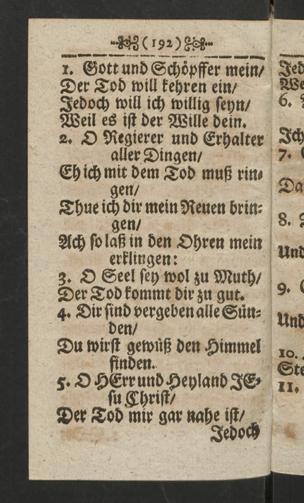 (192)
1. Gott und Schöpffer mein/
Der Tod will kehren ein/
Jedoch will ich willig seyn/
Weil es ist der Wille dein.
2. O Regierer und Erhalter
aller Dingen/
Eh ich mit dem Tod muß rin-
gen/
Thue ich dir mein Reuen brin-
gen/
Ach so laß in den Ohren mein
erklingen:
3. O Seel sey wol zu Muth/
Der Tod kommt dir zu gut.
4. Dir sind vergeben alle Sün-
den/
Du wirst gewüß den Himmel
finden.
5. O HErr und Heyland JE-
su Christ/
Der Tod mir gar nahe ist/
Jedoch
Jed
We
6.
Ich
7.
Da
8.
Und
9.
Und
10.
Ste
11.